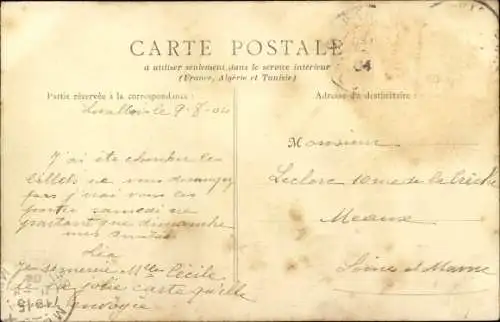 CARTE POSTALE
a utiliser seulement dans le service intérieur
(France, Algérie et Tunisie)
Partie réservée à la correspondance
Adresse du destinataire
Levallois le 9-8-04
J'ai été chercher les
billets ne vous dérangez
pas j'irai vous les
porter samedi ne
partant que dimanche
mes amitiés
Léa
Je remercie Mlle Cécile
de la jolie carte qu'elle
envoyée
Monsieur
Leclerc rue de la Crèche
Meaux
Seine et Marne
04